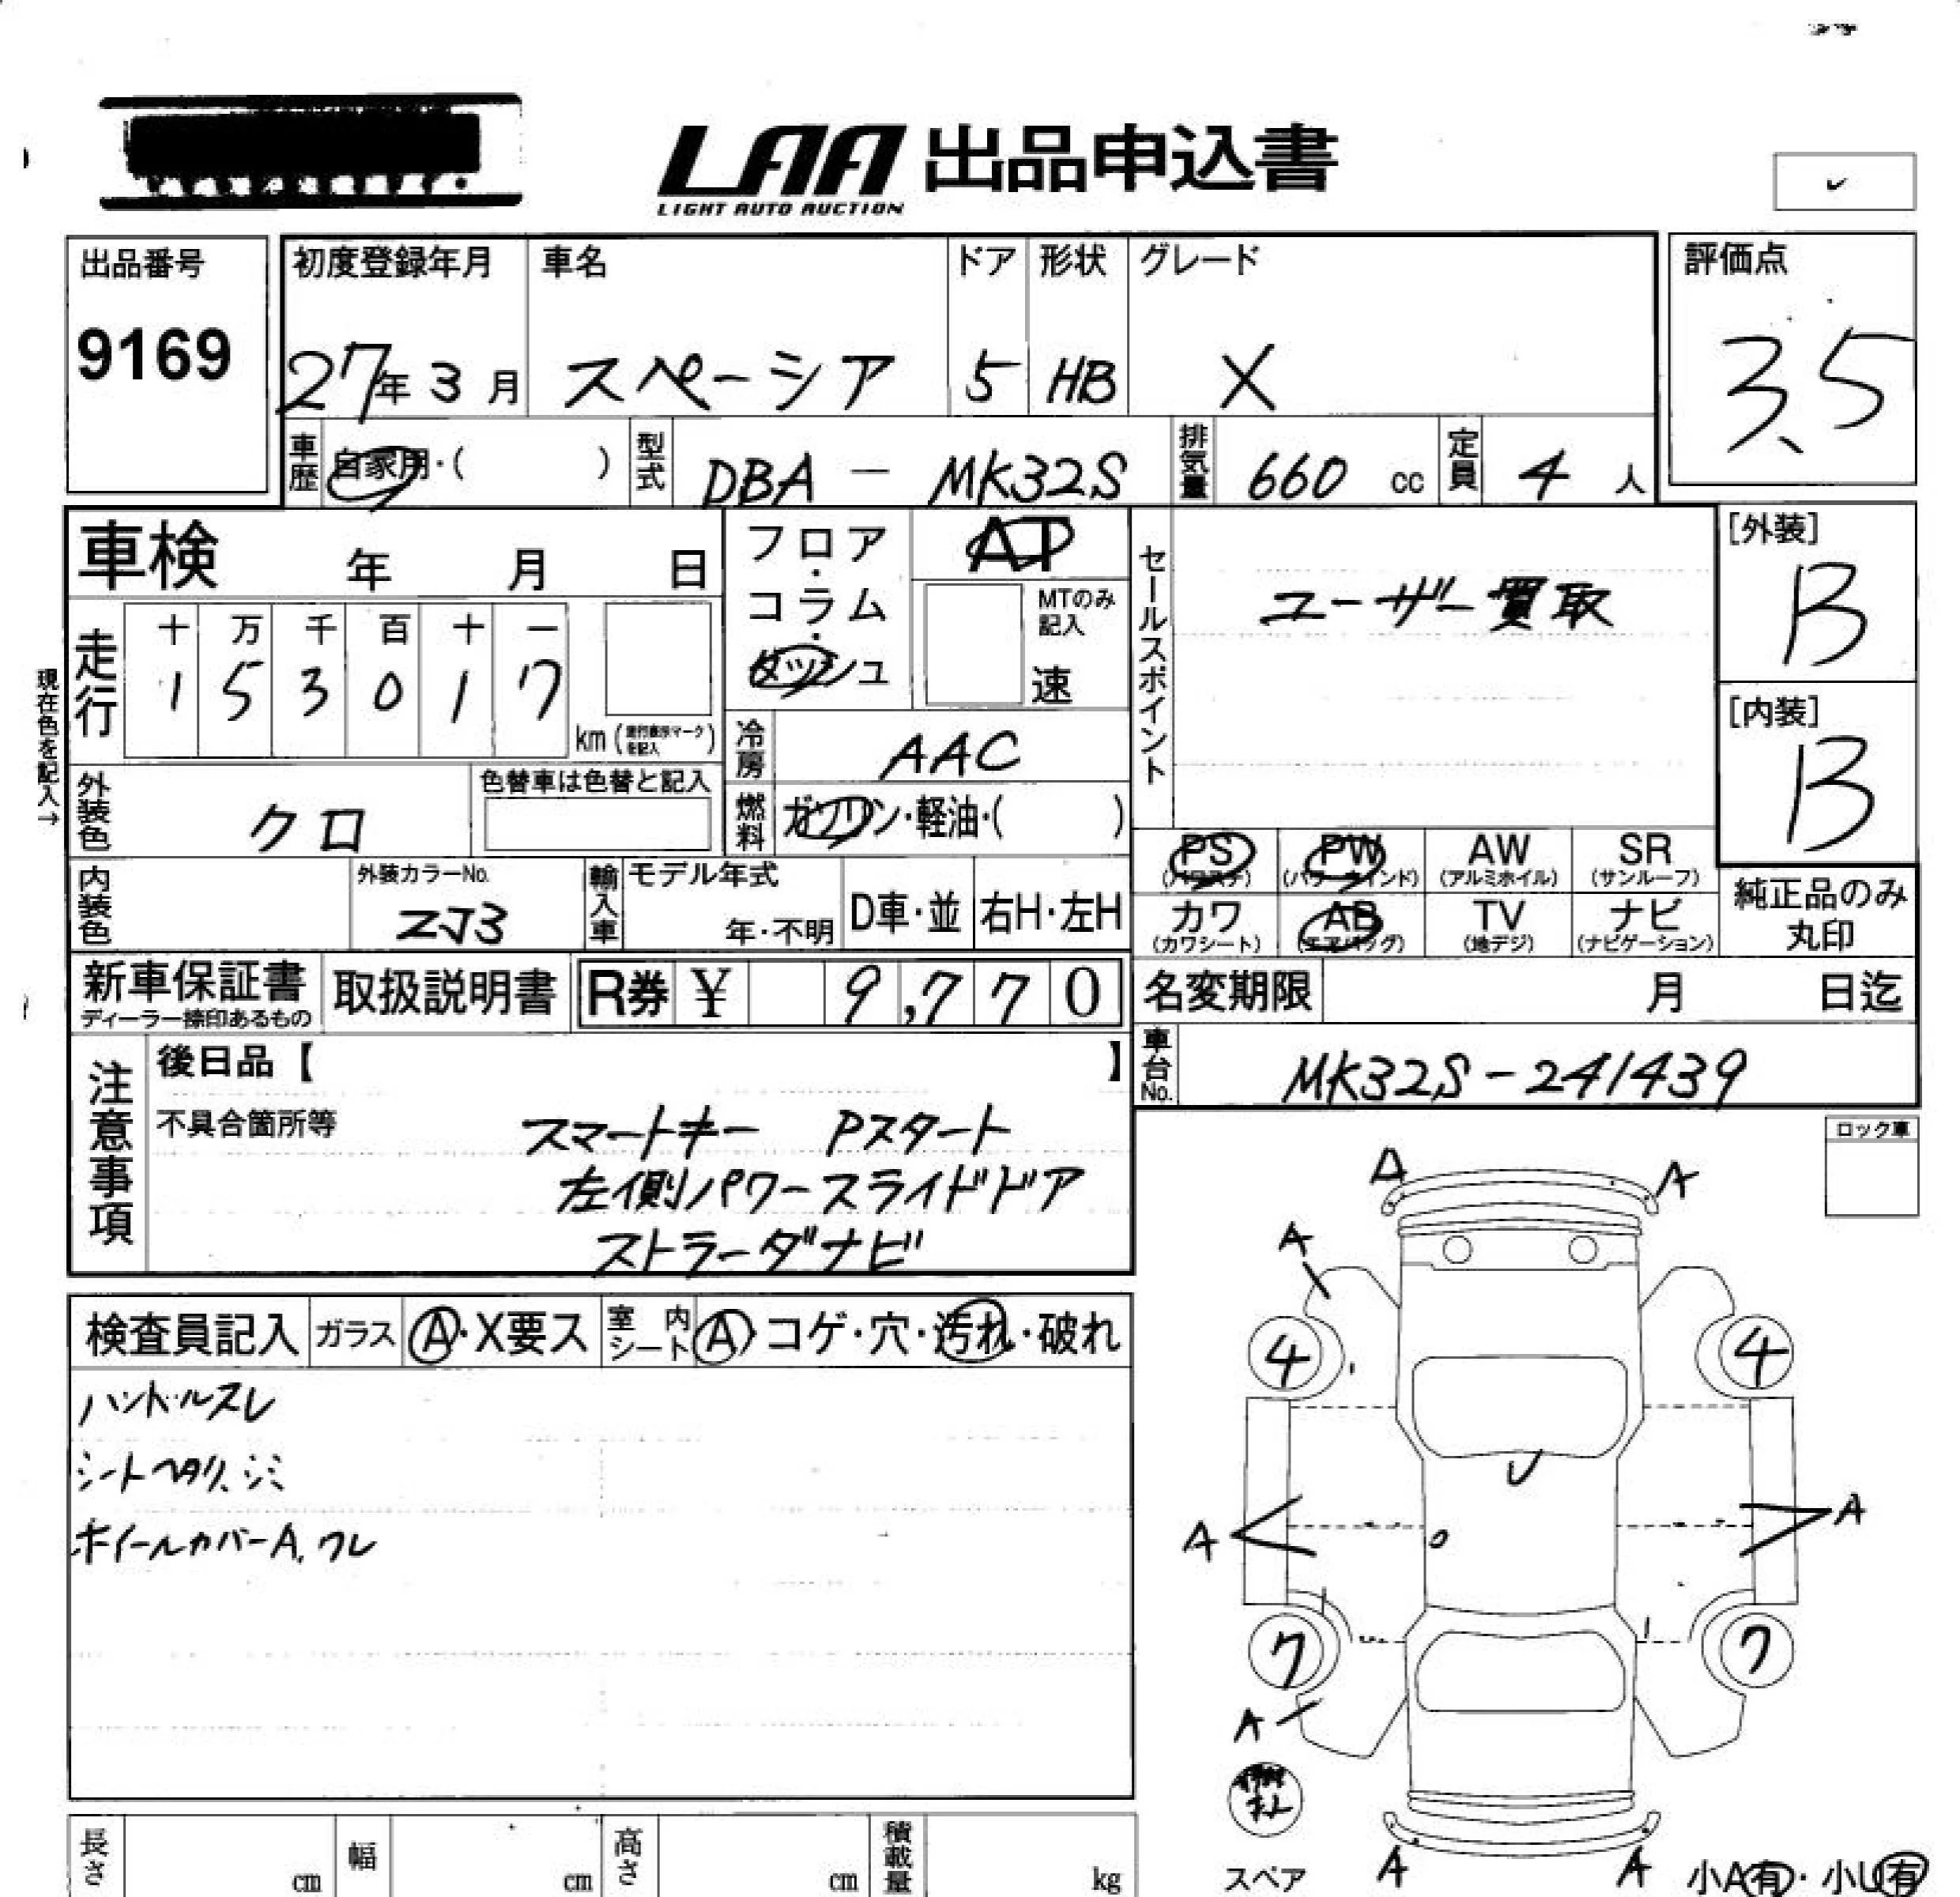 LAA 出品申込書
LIGHT AUTO AUCTION
出品番号
9169
初度登録年月 車名 ドア 形状 グレード
27年3月 スペーシア 5 HB X
評価点
3.5
車歴 自家用・( ) 型式 DBA - MK32S 排気量 660 cc 定員 4 人
車検 年 月 日
フロア・コラム・ダッシュ
AT
MTのみ記入
速
セールスポイント
ユーザー買取
[外装]
B
[内装]
B
現在色を記入→
走行 十 万 千 百 十 一
1 5 3 0 1 7
km (走行表示マークを記入)
冷房 AAC
燃料 ガソリン・軽油・( )
外装色 クロ
色替車は色替と記入
内装色
外装カラーNo.
ZJ3
輸入車 モデル年式
年・不明 D車・並 右H・左H
PS (パワステ) PW (パワーウインド) AW (アルミホイル) SR (サンルーフ)
カワ (カワシート) AB (エアバッグ) TV (地デジ) ナビ (ナビゲーション)
純正品のみ丸印
新車保証書
ディーラー捺印あるもの
取扱説明書 R券 ¥ 9,770
名変期限 月 日迄
車台No. MK32S-241439
注意事項
後日品【 】
不具合箇所等
スマートキー Pスタート
左側パワースライドドア
ストラーダナビ
ロック車
検査員記入 ガラス A・X要ス 室内シート A コゲ・穴・汚れ・破れ
ハンドルスレ
シートヘタリ、シミ
ホイールカバーA、ワレ
A A
A
4 4
U
A A
7 7
A
スペア
A A
小A有・小U有
長さ cm 幅 cm 高さ cm 積載量 kg